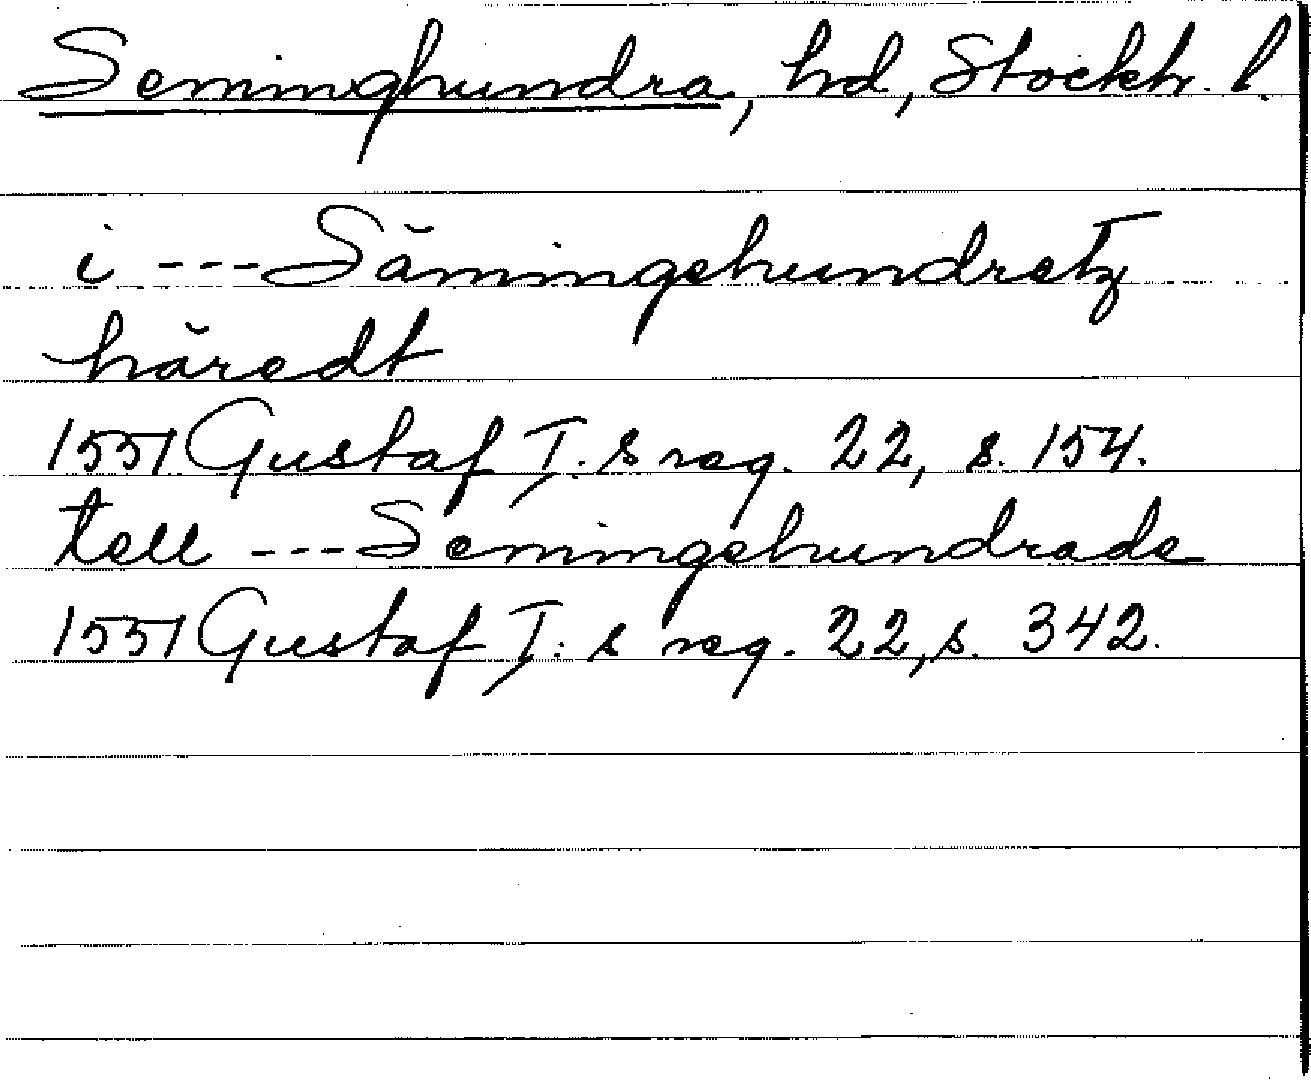 Seminghundra, hd, Stockh. l.
i --- Sämingehundretz
häredt
1551 Gustaf I. s reg. 22, s. 154.
tell --- Semingehundrade
1551 Gustaf I: s reg. 22, s. 342.